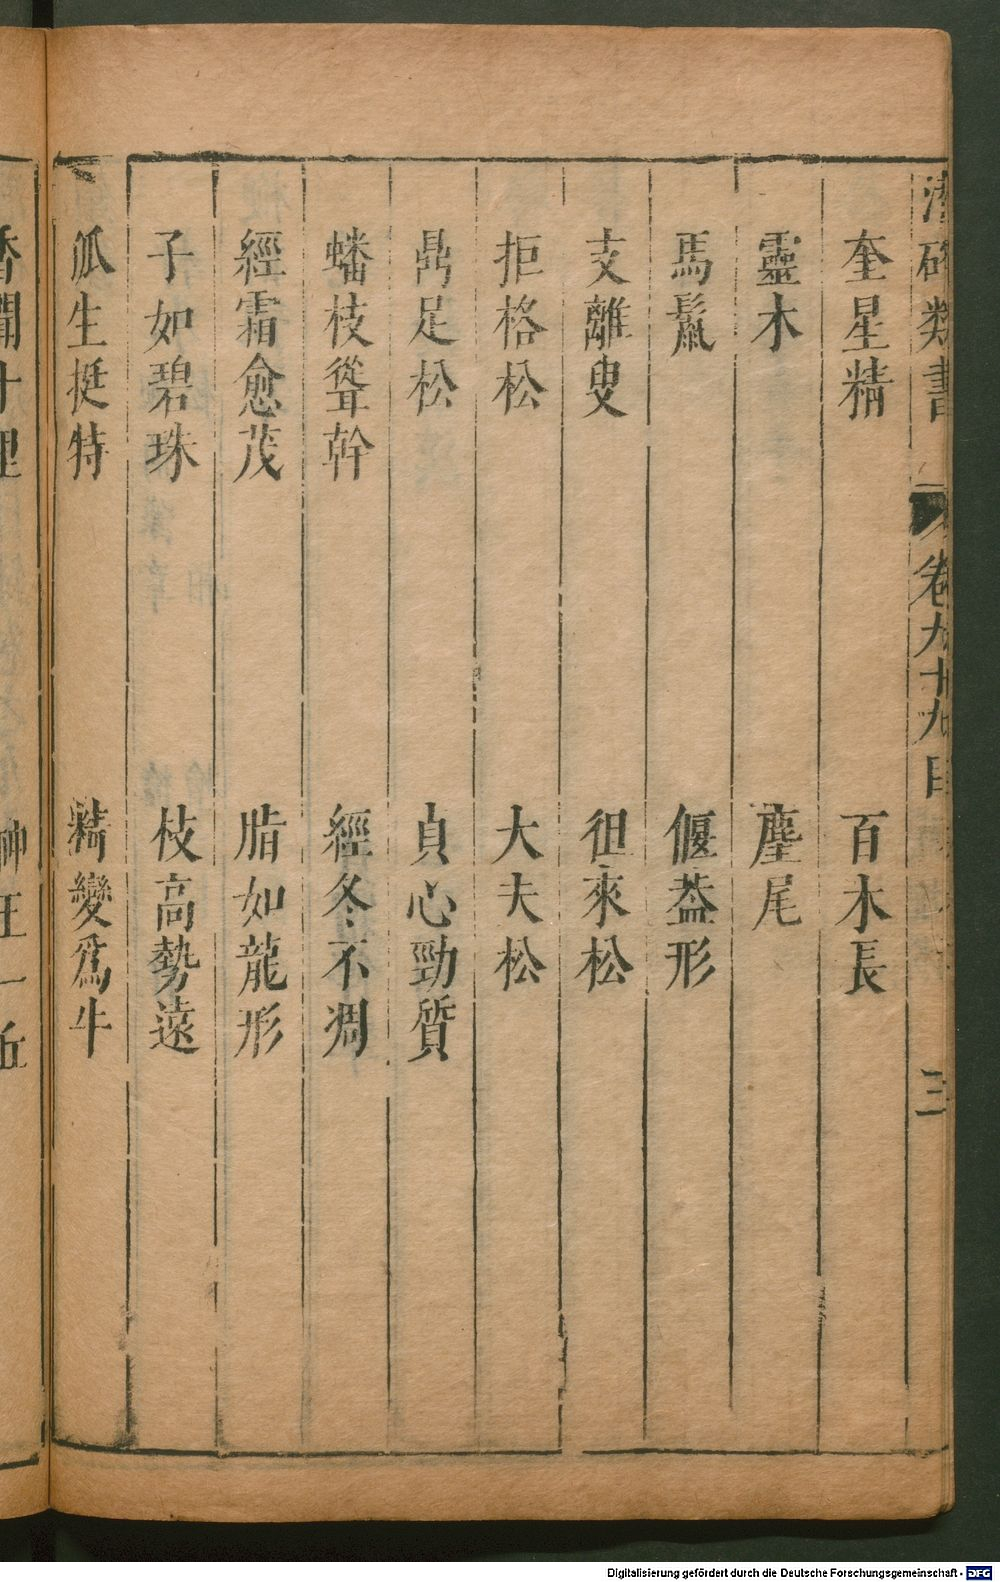 潛確類書 卷九十九目 三
奎星精 百木長
靈木 麈尾
馬鬣 偃葢形
支離叟 徂來松
拒格松 大夫松
鼎足松 貞心勁質
蟠枝聳幹 經冬不凋
經霜愈茂 脂如龍形
子如碧珠 枝高勢遠
孤生挺特 精變爲牛
香聞十里 一丘
Digitalisierung gefördert durch die Deutsche Forschungsgemeinschaft - DFG